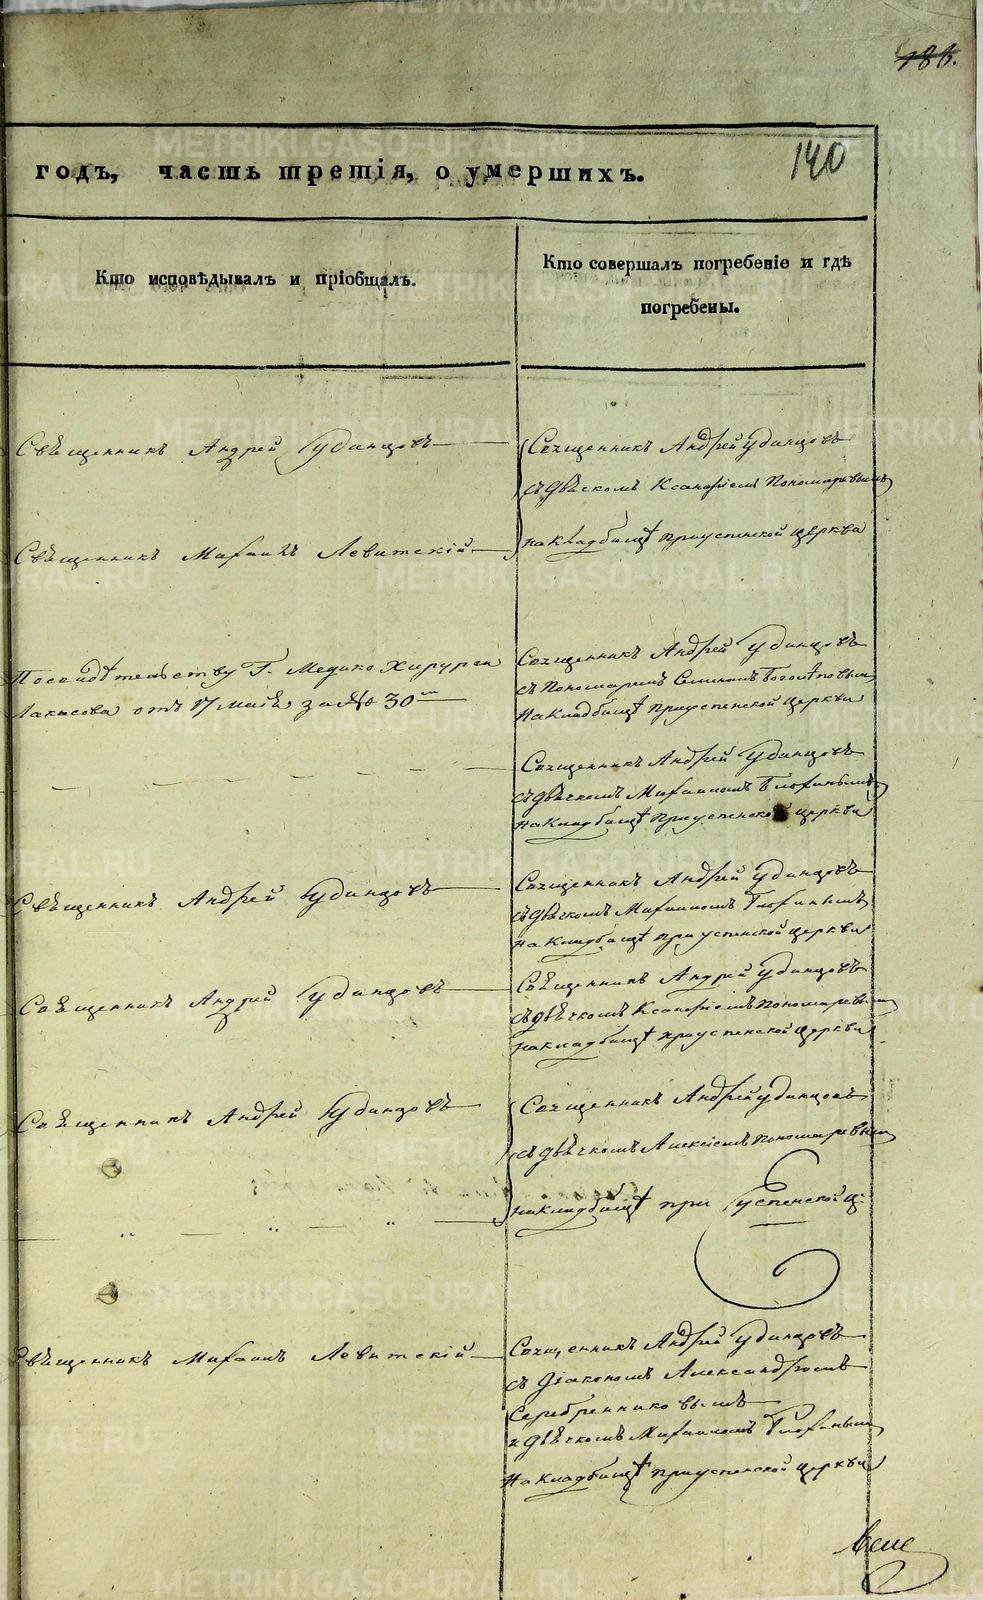 186.
140
годъ, часть третія, о умершихъ.
Кто исповѣдывалъ и пріобщалъ.
Кто совершалъ погребеніе и гдѣ
погребены.
Священникъ Андрей Удинцовъ
Священникъ Михаилъ Левитскій
Священникъ Андрей Удинцовъ
съ дьячкомъ Пономаревымъ
на кладбищѣ при успенской церкви
По свидѣтельству Г. Медико Хирурга
отъ 17 Маія за № 30
Священникъ Андрей Удинцовъ
съ Пономаремъ
на кладбищѣ при успенской церкви
Священникъ Андрей Удинцовъ
съ дьячкомъ Михаиломъ
на кладбищѣ при успенской церкви
Священникъ Андрей Удинцовъ
Священникъ Андрей Удинцовъ
съ дьячкомъ Михаиломъ
на кладбищѣ при успенской церкви
Священникъ Андрей Удинцовъ
Священникъ Андрей Удинцовъ
съ дьячкомъ Пономаревымъ
на кладбищѣ при успенской церкви
Священникъ Андрей Удинцовъ
Священникъ Андрей Удинцовъ
съ дьячкомъ Алексіемъ Пономаревымъ
на кладбищѣ при Успенской ц:
Священникъ Михаилъ Левитскій
Священникъ Андрей Удинцовъ
съ Діакономъ Александромъ
Серебренниковымъ
и дьячкомъ Михаиломъ
на кладбищѣ при успенской церкви
METRIKI.GASO-URAL.RU